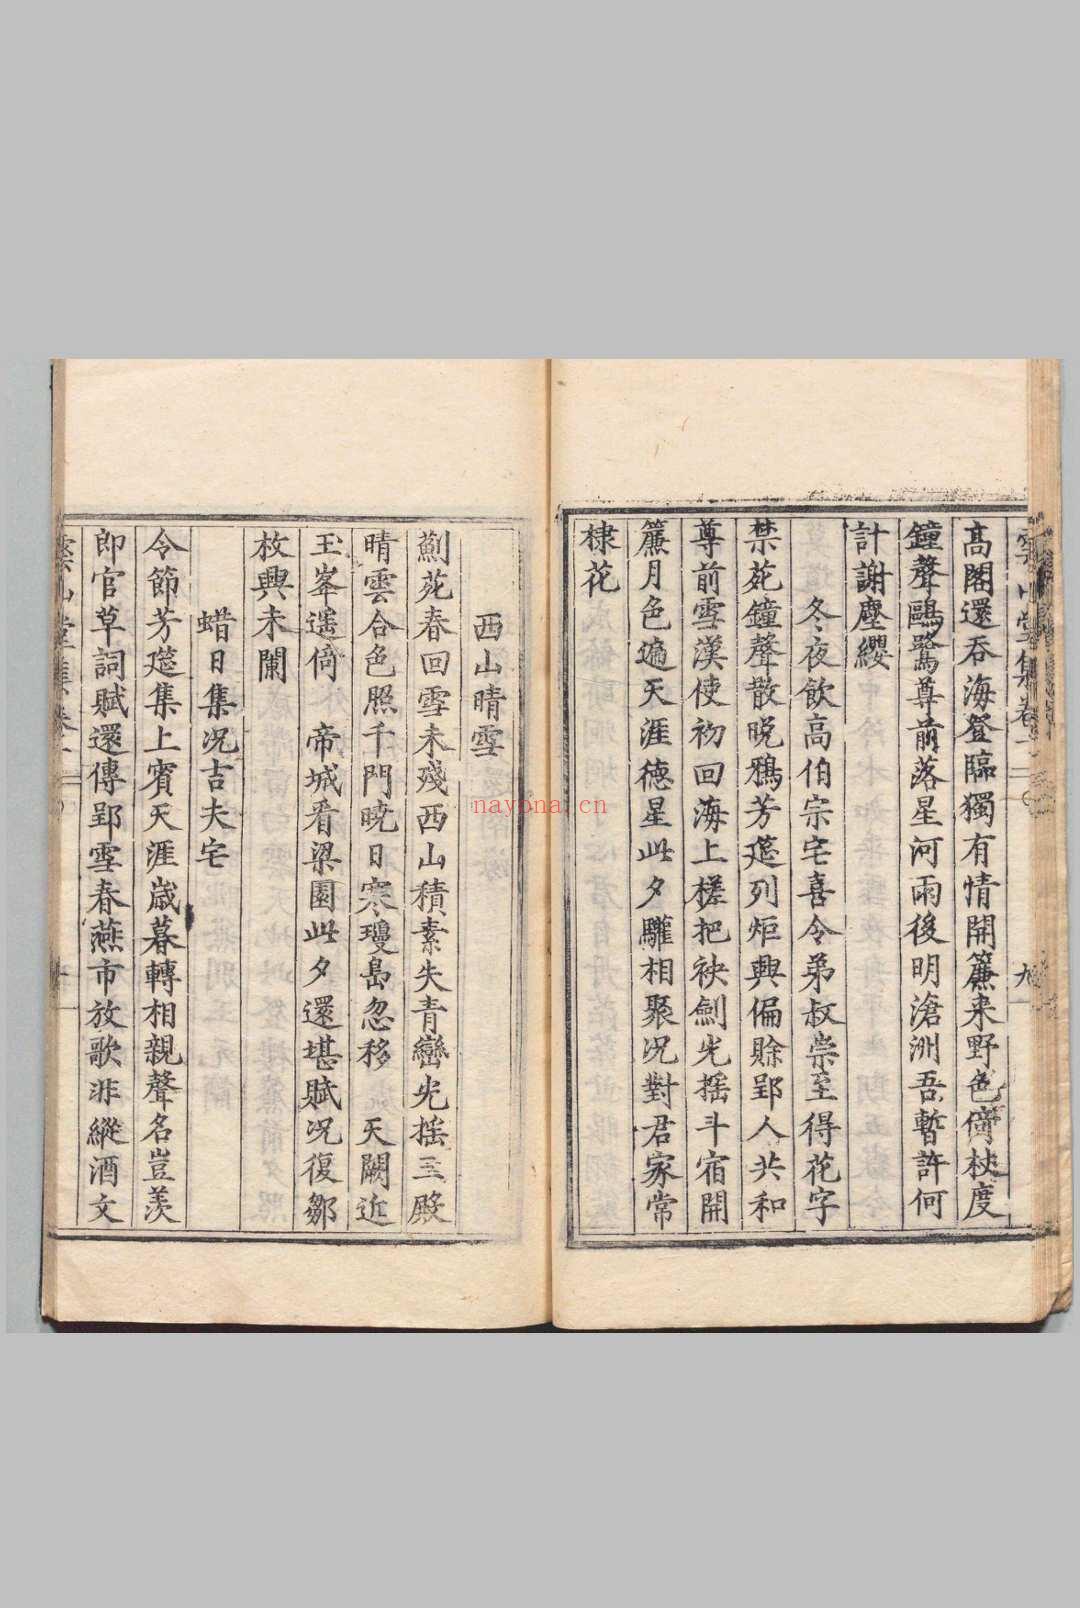 高閣還吞海登臨獨有情開簾来野色倚杖度
鐘聲鷗鷺尊前落星河雨後明滄洲吾暫許何
計謝塵纓
冬夜飲高伯宗宅喜令弟叔崇至得花字
禁苑鐘聲散晚鴉芳筵列炬興偏賒郢人共和
尊前雪漢使初回海上槎把袂劍光摇斗宿開
簾月色遍天涯德星此夕驩相聚況對君家常
棣花
西山晴雪
薊苑春回雪未殘西山積素失青巒光摇玉殿
晴雲合色照千門曉日寒瓊島忽移 天闕近
玉峯遥倚 帝城看梁園此夕還堪賦況復鄒
枚興未闌
蜡日集況吉夫宅
令節芳筵集上賓天涯歲暮轉相親聲名豈羨
郎官草詞賦還傳郢雪春燕市放歌非縱酒文
nayona.cn